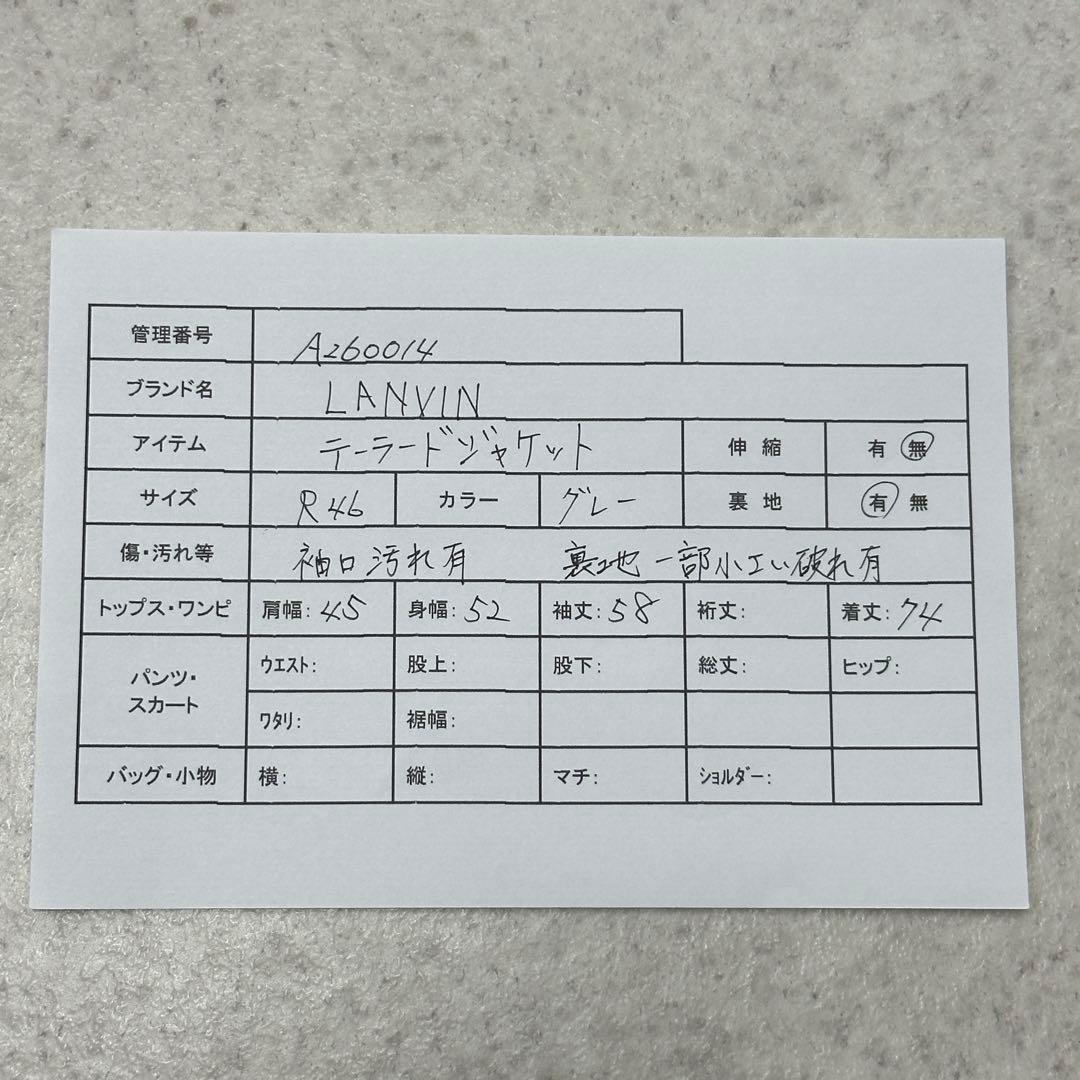 管理番号 A260014
ブランド名 LANVIN
アイテム テーラードジャケット 伸縮 有 無
サイズ R46 カラー グレー 裏地 有 無
傷・汚れ等 袖口汚れ有 裏地一部小エい破れ有
トップス・ワンピ 肩幅: 45 身幅: 52 袖丈: 58 裄丈: 着丈: 74
パンツ・スカート ウエスト: 股上: 股下: 総丈: ヒップ:
ワタリ: 裾幅:
バッグ・小物 横: 縦: マチ: ショルダー: